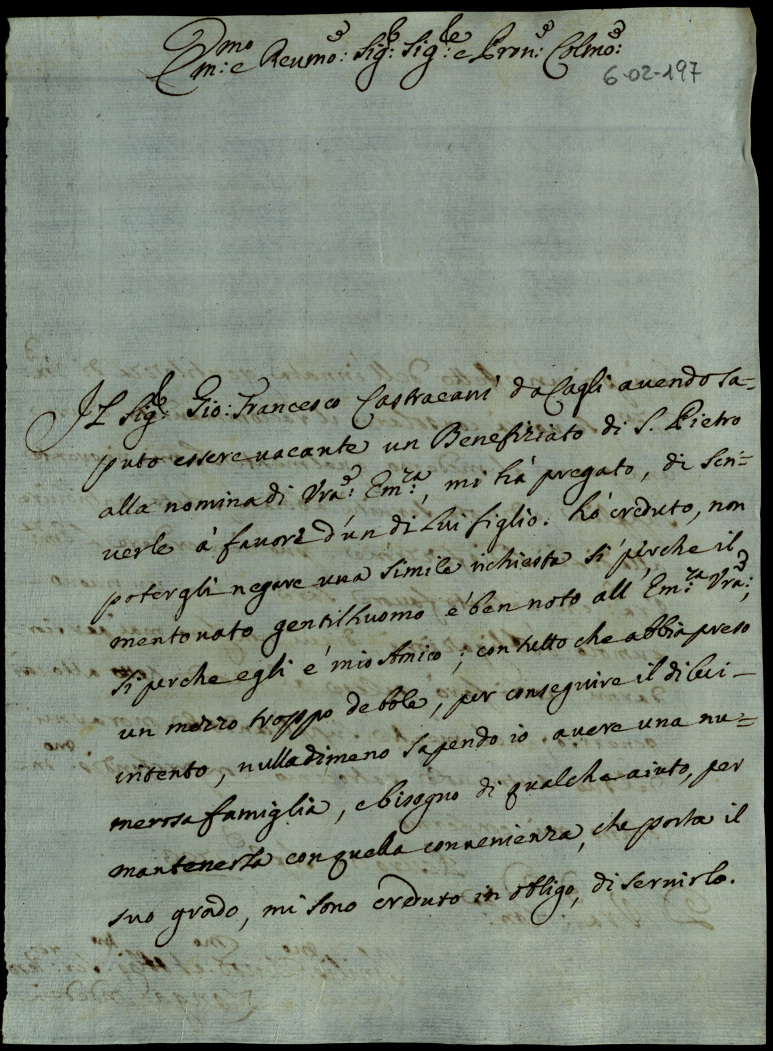 Em:mo e Reumo: Sig:r Sig:le e Pron: Colmo:
6-02-197
Il Sig:r Gio: Francesco Castracani da Cagli auendo sa=
puto essere uacante un Benefiziato di S. Pietro
alla nomina di Vra: Em:za, mi hà pregato, di scri=
uerle à fauore d'un di Lui figlio. hò creduto, non
potergli negare una simile richiesta sì perche il
mentouato gentilhuomo è ben noto all' Em:za Vra:,
si perche egli è mio Amico; con tutto che abbia preso
un mezzo troppo debole, per conseguire il di lui
intento, nulladimeno sapendo io auere una nu=
merosa famiglia, e bisogno di qualche aiuto, per
mantenerla con quella conuenienza, che porta il
suo grado, mi sono creduto in obligo, di seruirlo.